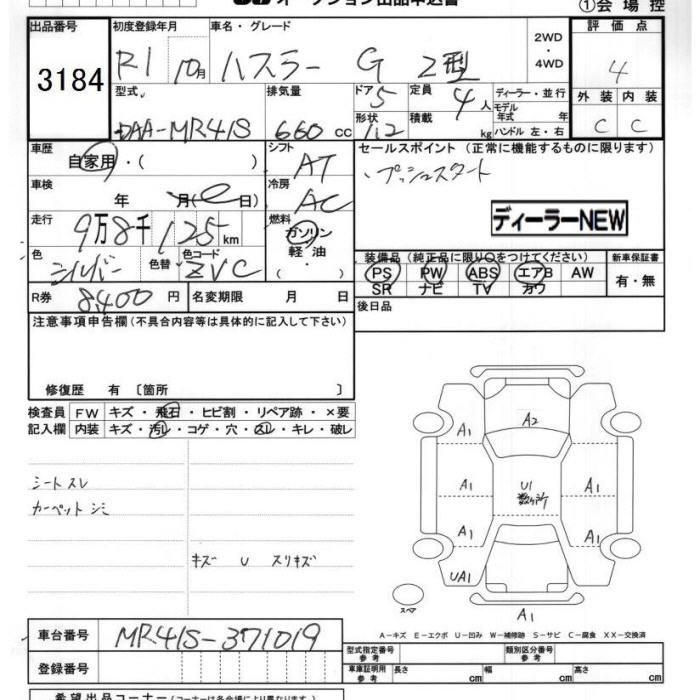 オークション出品申込書 ①会場控
出品番号 初度登録年月 車名・グレード 2WD ・ 4WD 評価点
3184 R1 10月 ハスラー G 2型 4
型式 排気量 ドア 定員 ディーラー・並行 外装 内装
DAA-MR41S 660 cc 5 4人 モデル年式 年
形状 積載 ハンドル 左・右 C C
1.2 kg
車歴 シフト セールスポイント (正常に機能するものに限ります)
自家用・( ) AT プッシュスタート
車検 冷房
年 月( 日) AC
ディーラーNEW
走行 燃料
9万8千125km ガソリン
軽・油
( ・ )
色 色替 色コード 装備品 (純正品に限り○をつけてください) 新車保証書
シルバー ZVC PS PW ABS エアB AW 有・無
SR ナビ TV カワ
R券 8,400円 名変期限 月 日 後日品
注意事項申告欄(不具合内容等は具体的に記入して下さい)
修復歴 有 〔箇所 〕
検査員 FW キズ・飛石・ヒビ割・リペア跡・×要
記入欄 内装 キズ・汚レ・コゲ・穴・スレ・キレ・破レ
A1 A2 A1
シートスレ
カーペットシミ
A1 U1 数ヶ所 A1
A1 A1
キズ U スリキズ
UA1
スペア
A1
A-キズ E-エクボ U-凹み W-補修跡 S-サビ C-腐食 XX-交換済
車台番号 MR41S-371019
型式指定番号 参考 類別区分番号 参考
登録番号 車庫証明用 参考 長さ cm 幅 cm 高さ cm
希望出品コーナー (コーナーは各会場により異なります)